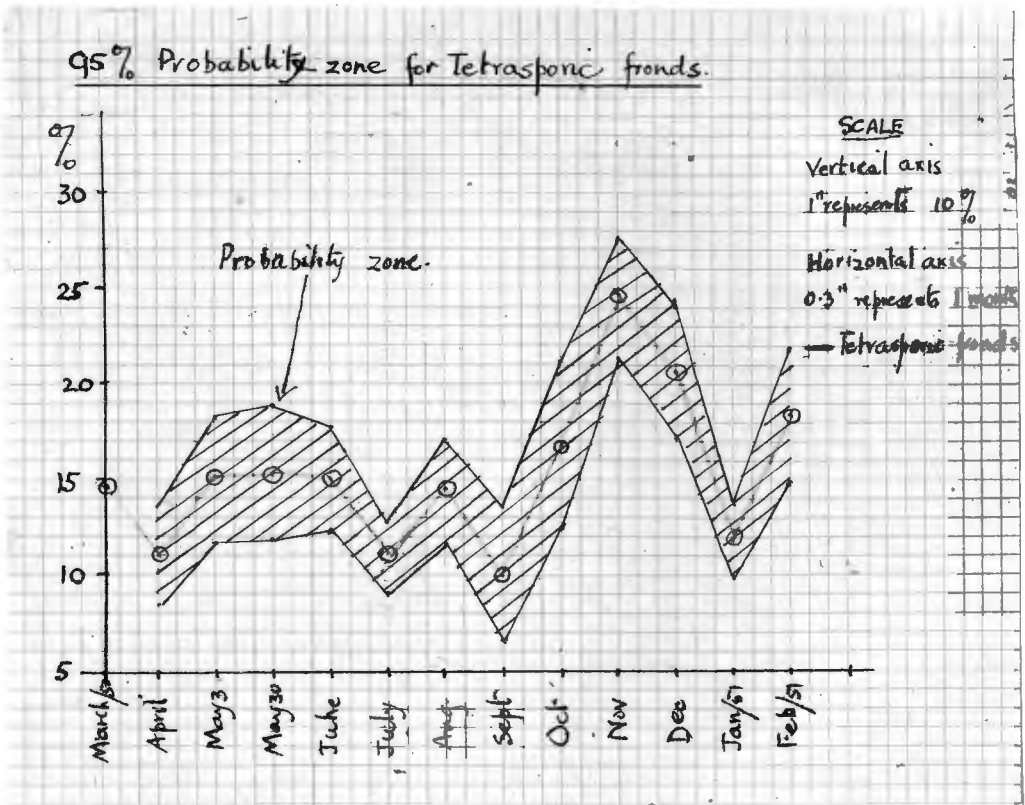 95% Probability zone for Tetrasporic fronds.
%
30
25
20
15
10
5
Probability zone.
SCALE
Vertical axis
1" represents 10%
Horizontal axis
0.3" represents 1 month
Tetrasporic fronds
March/
April
May 3
May 30
June
July
Aug
Sept
Oct
Nov
Dec
Jan/57
Feb/57